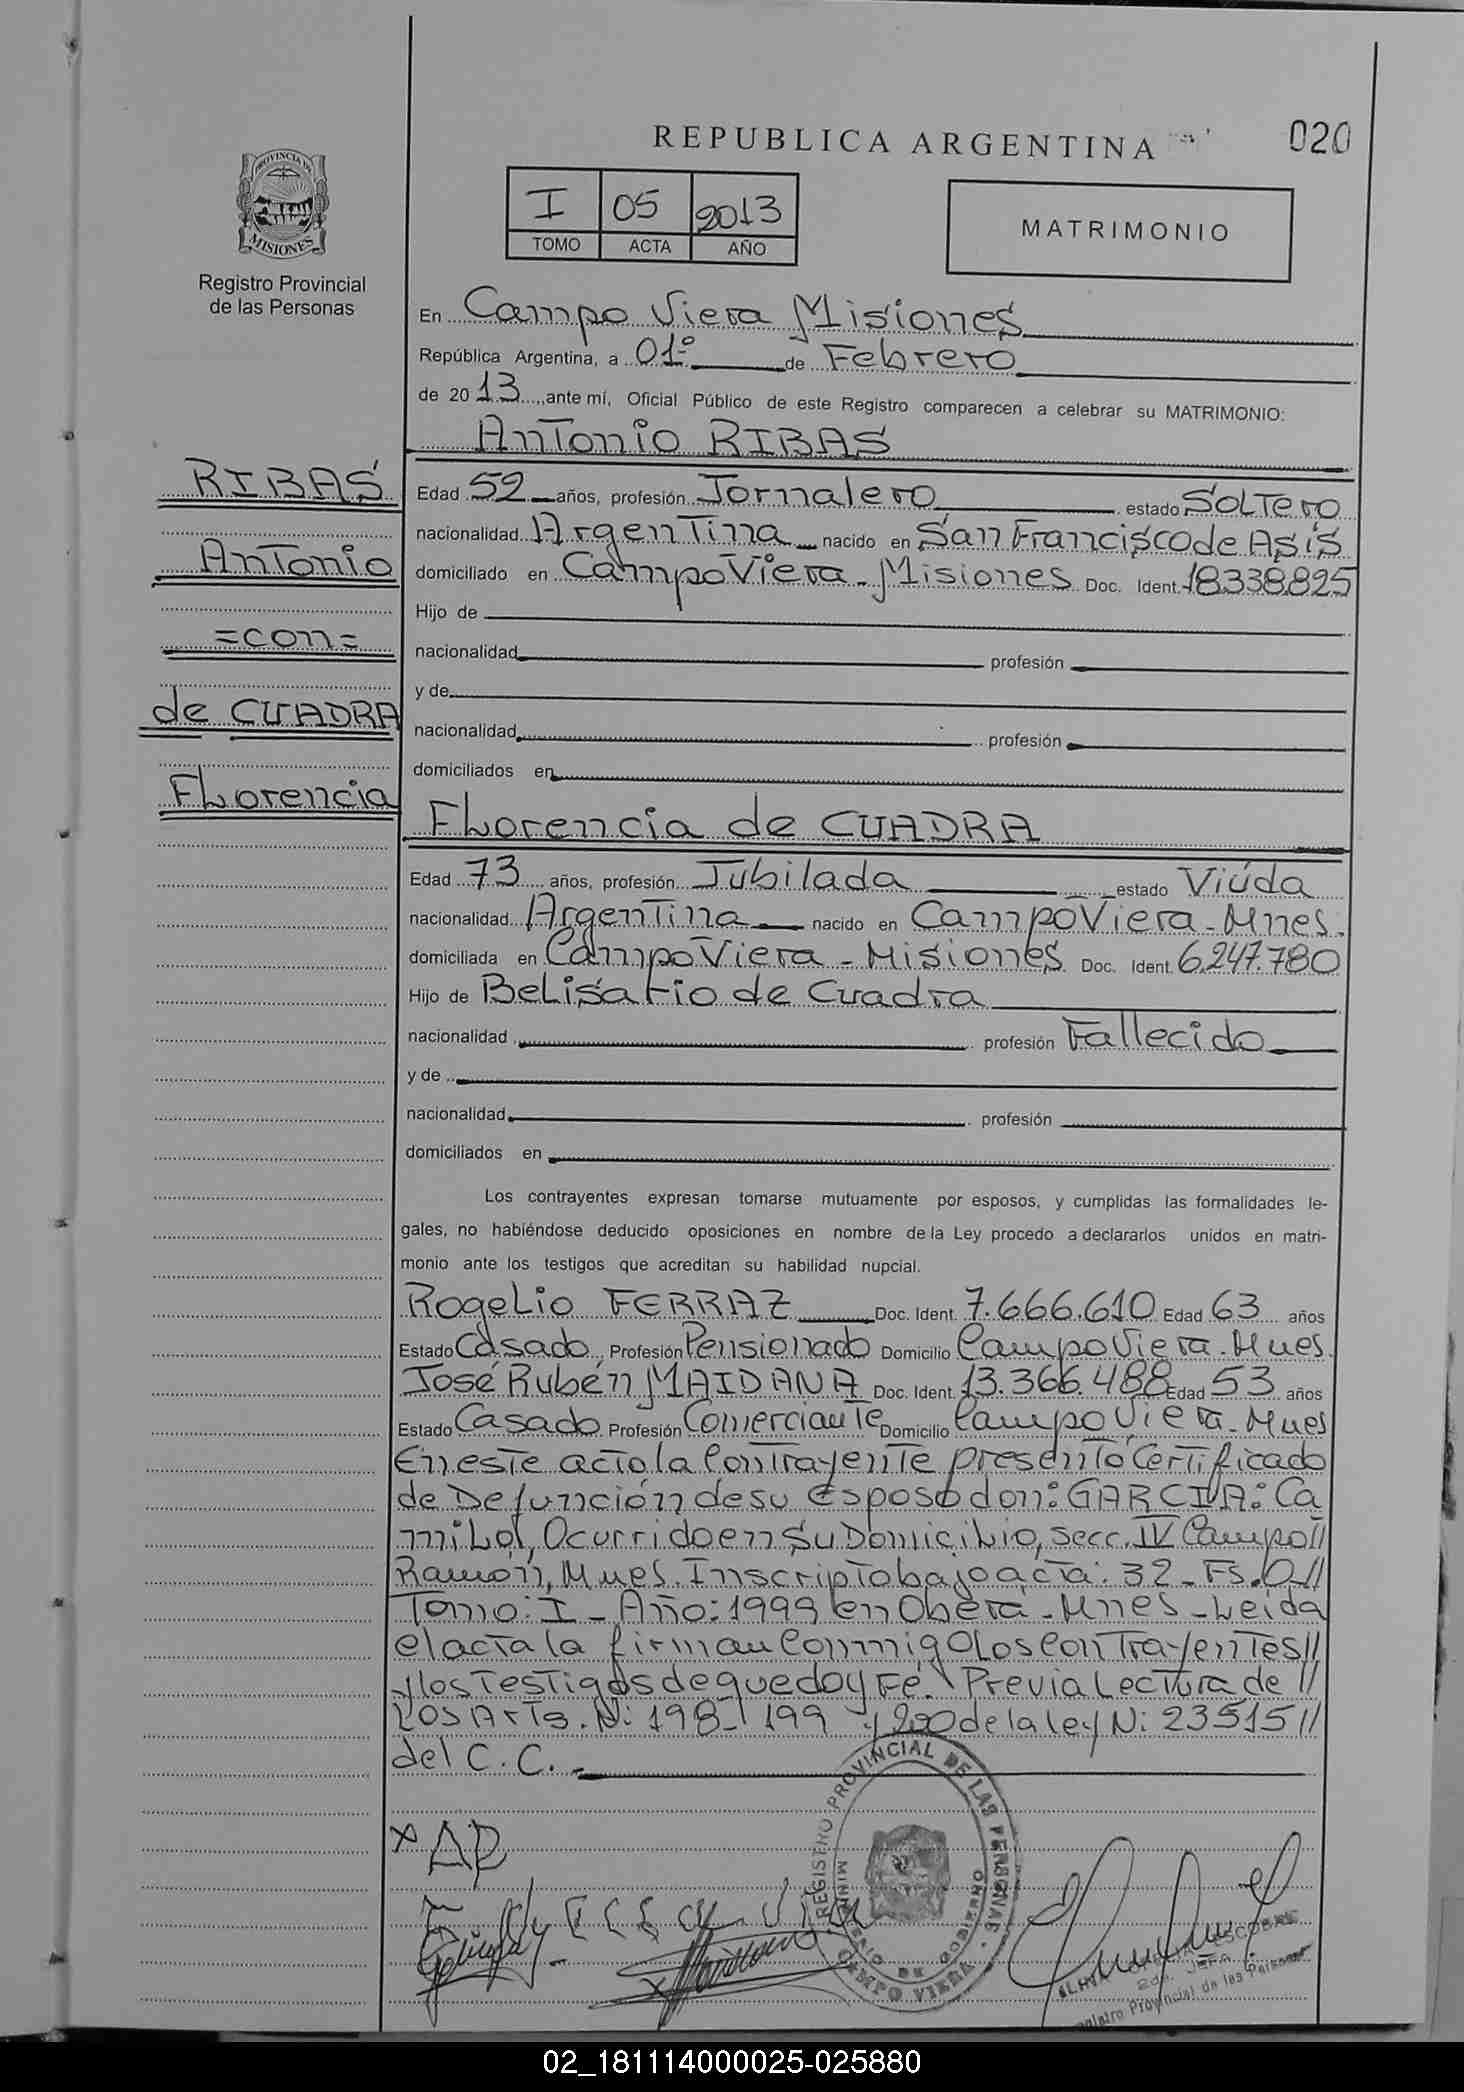 REPUBLICA ARGENTINA
020
PROVINCIA DE
MISIONES
Registro Provincial
de las Personas
I 05 2013
TOMO ACTA AÑO
MATRIMONIO
En Campo Viera Misiones
República Argentina, a 01º de Febrero
de 2013, ante mí, Oficial Público de este Registro comparecen a celebrar su MATRIMONIO:
Antonio RIBAS
RIBAS
Antonio
=con=
de CUADRA
Florencia
Edad 52 años, profesión Jornalero estado Soltero
nacionalidad Argentina nacido en San Francisco de Asís
domiciliado en Campo Viera - Misiones Doc. Ident. 18338825
Hijo de
nacionalidad profesión
y de
nacionalidad profesión
domiciliados en
Florencia de CUADRA
Edad 73 años, profesión Jubilada estado Viúda
nacionalidad Argentina nacido en Campo Viera - Mnes.
domiciliada en Campo Viera - Misiones Doc. Ident. 6.247.780
Hijo de Belisario de Cuadra
nacionalidad profesión Fallecido
y de
nacionalidad profesión
domiciliados en
Los contrayentes expresan tomarse mutuamente por esposos, y cumplidas las formalidades le-
gales, no habiéndose deducido oposiciones en nombre de la Ley procedo a declararlos unidos en matri-
monio ante los testigos que acreditan su habilidad nupcial.
Rogelio FERRAZ Doc. Ident. 7.666.610 Edad 63 años
Estado Casado, Profesión Pensionado Domicilio Campo Viera - Mnes.
José Rubén MAIDANA Doc. Ident. 13.366.488 Edad 53 años
Estado Casado Profesión Comerciante Domicilio Campo Viera - Mnes
En este acto la Contrayente presentó Certificado
de Defunción de su esposo don: GARCIA: Ca
milo, Ocurrido en su Domicilio, secc. IV Campo//
Ramón, Mnes. Inscripto bajo acta: 32 - Fs. 0//
Tomo: I - Año: 1999 en Oberá - Mnes - Leída
el acta la firman Conmigo Los Contrayentes//
y los Testigos de que doy Fé. Previa Lectura de //
Los Arts. N: 198- 199 y 200 de la ley N: 23515//
del C. C. -
x AR
REGISTRO PROVINCIAL DE LAS PERSONAS
MINISTERIO DE GOBIERNO
CAMPO VIERA
ESCOBAR
2da. JEFA
Registro Provincial de las Personas
02_181114000025-025880